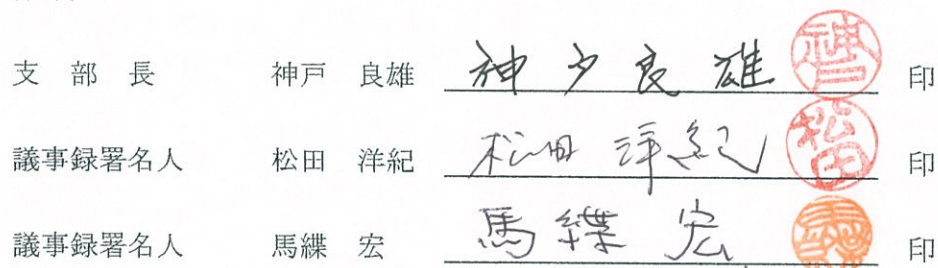 支 部 長 神戸 良雄 神戸良雄 神戸 印
議事録署名人 松田 洋紀 松田 洋紀 松田 印
議事録署名人 馬緤 宏 馬緤 宏 印